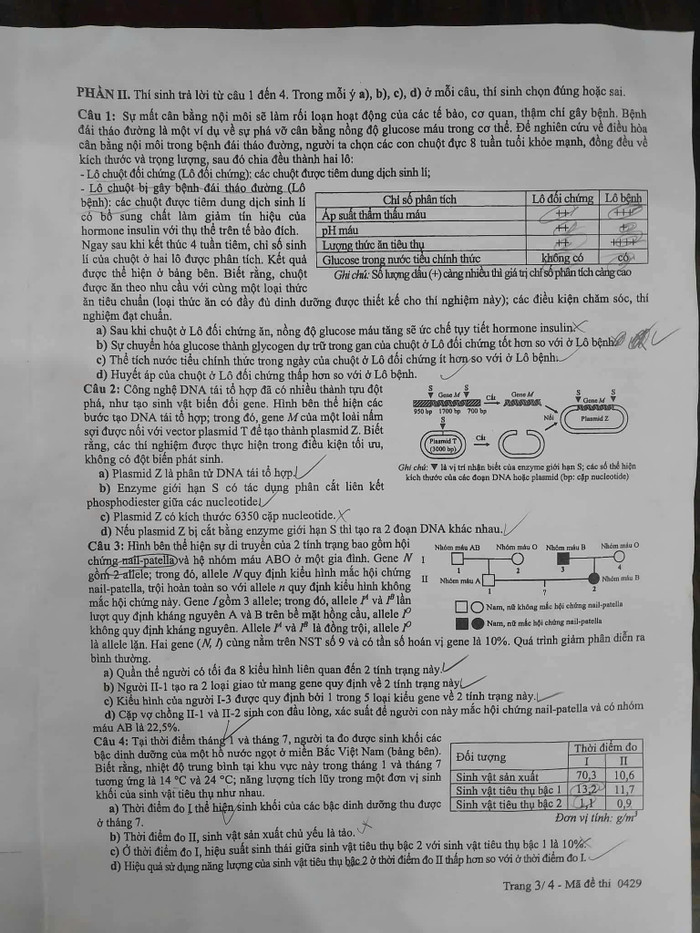 PHẦN II. Thí sinh trả lời từ câu 1 đến 4. Trong mỗi ý a), b), c), d) ở mỗi câu, thí sinh chọn đúng hoặc sai.
Câu 1: Sự mất cân bằng nội môi sẽ làm rối loạn hoạt động của các tế bào, cơ quan, thậm chí gây bệnh. Bệnh
đái tháo đường là một ví dụ về sự phá vỡ cân bằng nồng độ glucose máu trong cơ thể. Để nghiên cứu về điều hòa
cân bằng nội môi trong bệnh đái tháo đường, người ta chọn các con chuột đực 8 tuần tuổi khỏe mạnh, đồng đều về
kích thước và trọng lượng, sau đó chia đều thành hai lô:
- Lô chuột đối chứng (Lô đối chứng): các chuột được tiêm dung dịch sinh lí;
- Lô chuột bị gây bệnh đái tháo đường (Lô
bệnh): các chuột được tiêm dung dịch sinh lí
có bổ sung chất làm giảm tín hiệu của
hormone insulin với thụ thể trên tế bào đích.
Ngay sau khi kết thúc 4 tuần tiêm, chỉ số sinh
lí của chuột ở hai lô được phân tích. Kết quả
được thể hiện ở bảng bên. Biết rằng, chuột
được ăn theo nhu cầu với cùng một loại thức
Chỉ số phân tích Lô đối chứng Lô bệnh
Áp suất thẩm thấu máu ++ +++
pH máu ++ +
Lượng thức ăn tiêu thụ ++ ++++
Glucose trong nước tiểu chính thức không có có
Ghi chú: Số lượng dấu (+) càng nhiều thì giá trị chỉ số phân tích càng cao
ăn tiêu chuẩn (loại thức ăn có đầy đủ dinh dưỡng được thiết kế cho thí nghiệm này); các điều kiện chăm sóc, thí
nghiệm đạt chuẩn.
a) Sau khi chuột ở Lô đối chứng ăn, nồng độ glucose máu tăng sẽ ức chế tụy tiết hormone insulin.
b) Sự chuyển hóa glucose thành glycogen dự trữ trong gan của chuột ở Lô đối chứng tốt hơn so với ở Lô bệnh.
c) Thể tích nước tiểu chính thức trong ngày của chuột ở Lô đối chứng ít hơn so với ở Lô bệnh.
d) Huyết áp của chuột ở Lô đối chứng thấp hơn so với ở Lô bệnh.
Câu 2: Công nghệ DNA tái tổ hợp đã có nhiều thành tựu đột
phá, như tạo sinh vật biến đổi gene. Hình bên thể hiện các
bước tạo DNA tái tổ hợp; trong đó, gene M của một loài nấm
sợi được nối với vector plasmid T để tạo thành plasmid Z. Biết
rằng, các thí nghiệm được thực hiện trong điều kiện tối ưu,
không có đột biến phát sinh.
S Gene M S
950 bp 1700 bp 700 bp
Cắt
Gene M
S
Plasmid T
(3000 bp)
Cắt
Nối
S S
Gene M
Plasmid Z
Ghi chú: ▼ là vị trí nhận biết của enzyme giới hạn S; các số thể hiện
kích thước của các đoạn DNA hoặc plasmid (bp: cặp nucleotide)
a) Plasmid Z là phân tử DNA tái tổ hợp.
b) Enzyme giới hạn S có tác dụng phân cắt liên kết
phosphodiester giữa các nucleotide.
c) Plasmid Z có kích thước 6350 cặp nucleotide.
d) Nếu plasmid Z bị cắt bằng enzyme giới hạn S thì tạo ra 2 đoạn DNA khác nhau.
Câu 3: Hình bên thể hiện sự di truyền của 2 tính trạng bao gồm hội
chứng nail-patella và hệ nhóm máu ABO ở một gia đình. Gene N
gồm 2 allele; trong đó, allele N quy định kiểu hình mắc hội chứng
nail-patella, trội hoàn toàn so với allele n quy định kiểu hình không
mắc hội chứng này. Gene I gồm 3 allele; trong đó, allele Iᴬ và Iᴮ lần
lượt quy định kháng nguyên A và B trên bề mặt hồng cầu, allele Iᴼ
không quy định kháng nguyên. Allele Iᴬ và Iᴮ là đồng trội, allele Iᴼ
Nhóm máu AB Nhóm máu O Nhóm máu B Nhóm máu O
I
1 2 3 4
II Nhóm máu A Nhóm máu B
1 ? 2
Nam, nữ không mắc hội chứng nail-patella
Nam, nữ mắc hội chứng nail-patella
là allele lặn. Hai gene (N, I) cùng nằm trên NST số 9 và có tần số hoán vị gene là 10%. Quá trình giảm phân diễn ra
bình thường.
a) Quần thể người có tối đa 8 kiểu hình liên quan đến 2 tính trạng này.
b) Người II-1 tạo ra 2 loại giao tử mang gene quy định về 2 tính trạng này.
c) Kiểu hình của người I-3 được quy định bởi 1 trong 5 loại kiểu gene về 2 tính trạng này.
d) Cặp vợ chồng II-1 và II-2 sinh con đầu lòng, xác suất để người con này mắc hội chứng nail-patella và có nhóm
máu AB là 22,5%.
Câu 4: Tại thời điểm tháng 1 và tháng 7, người ta đo được sinh khối các
bậc dinh dưỡng của một hồ nước ngọt ở miền Bắc Việt Nam (bảng bên).
Biết rằng, nhiệt độ trung bình tại khu vực này trong tháng 1 và tháng 7
tương ứng là 14 °C và 24 °C; năng lượng tích lũy trong một đơn vị sinh
khối của sinh vật tiêu thụ như nhau.
Đối tượng Thời điểm đo
I II
Sinh vật sản xuất 70,3 10,6
Sinh vật tiêu thụ bậc 1 13,2 11,7
Sinh vật tiêu thụ bậc 2 1,1 0,9
Đơn vị tính: g/m³
a) Thời điểm đo I thể hiện sinh khối của các bậc dinh dưỡng thu được
ở tháng 7.
b) Thời điểm đo II, sinh vật sản xuất chủ yếu là tảo.
c) Ở thời điểm đo I, hiệu suất sinh thái giữa sinh vật tiêu thụ bậc 2 với sinh vật tiêu thụ bậc 1 là 10%.
d) Hiệu quả sử dụng năng lượng của sinh vật tiêu thụ bậc 2 ở thời điểm đo II thấp hơn so với ở thời điểm đo I.
Trang 3/ 4 - Mã đề thi 0429